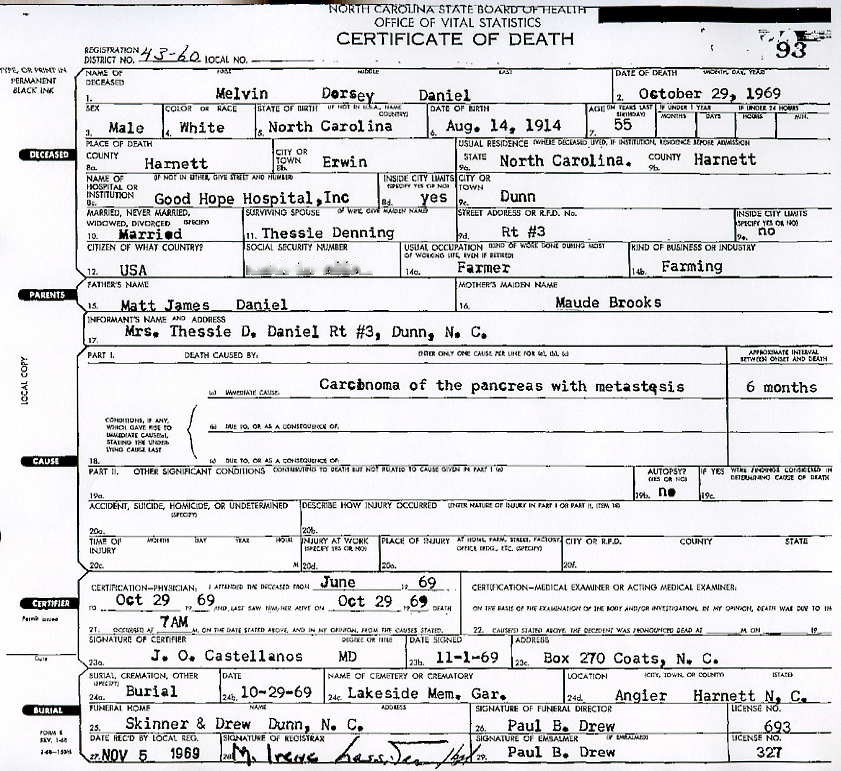 NORTH CAROLINA STATE BOARD OF HEALTH
OFFICE OF VITAL STATISTICS
CERTIFICATE OF DEATH
93
REGISTRATION DISTRICT NO. 43-60 LOCAL NO.
TYPE, OR PRINT IN PERMANENT BLACK INK
NAME OF DECEASED FIRST MIDDLE LAST DATE OF DEATH (MONTH, DAY, YEAR)
1. Melvin Dorsey Daniel 2. October 29, 1969
SEX COLOR OR RACE STATE OF BIRTH (IF NOT IN U.S.A., NAME COUNTRY) DATE OF BIRTH AGE (IN YEARS LAST BIRTHDAY) IF UNDER 1 YEAR IF UNDER 24 HOURS
MONTHS DAYS HOURS MIN.
3. Male 4. White 5. North Carolina 6. Aug. 14, 1914 7. 55
DECEASED
PLACE OF DEATH USUAL RESIDENCE (WHERE DECEASED LIVED, IF INSTITUTION, RESIDENCE BEFORE ADMISSION
COUNTY CITY OR TOWN STATE COUNTY
8a. Harnett 8b. Erwin 9a. North Carolina. 9b. Harnett
NAME OF HOSPITAL OR INSTITUTION (IF NOT IN EITHER, GIVE STREET AND NUMBER) INSIDE CITY LIMITS (SPECIFY YES OR NO) CITY OR TOWN
8c. Good Hope Hospital,Inc 8d. yes 9c. Dunn
MARRIED, NEVER MARRIED, WIDOWED, DIVORCED (SPECIFY) SURVIVING SPOUSE (IF WIFE, GIVE MAIDEN NAME) STREET ADDRESS OR R.F.D. No. INSIDE CITY LIMITS (SPECIFY YES OR NO)
10. Married 11. Thessie Denning 9d. Rt #3 9e. no
CITIZEN OF WHAT COUNTRY? SOCIAL SECURITY NUMBER USUAL OCCUPATION (KIND OF WORK DONE DURING MOST OF WORKING LIFE, EVEN IF RETIRED) KIND OF BUSINESS OR INDUSTRY
12. USA 14a. Farmer 14b. Farming
PARENTS
FATHER'S NAME MOTHER'S MAIDEN NAME
15. Matt James Daniel 16. Maude Brooks
INFORMANT'S NAME AND ADDRESS
17. Mrs. Thessie D. Daniel Rt #3, Dunn, N. C.
LOCAL COPY
PART I. DEATH CAUSED BY: ENTER ONLY ONE CAUSE PER LINE FOR (a), (b), (c) APPROXIMATE INTERVAL BETWEEN ONSET AND DEATH
(a) IMMEDIATE CAUSE. Carcinoma of the pancreas with metastasis 6 months
CONDITIONS, IF ANY, WHICH GAVE RISE TO IMMEDIATE CAUSE(a), STATING THE UNDERLYING CAUSE LAST
(b) DUE TO, OR AS A CONSEQUENCE OF:
CAUSE
18. (c) DUE TO, OR AS A CONSEQUENCE OF:
PART II. OTHER SIGNIFICANT CONDITIONS CONTRIBUTING TO DEATH BUT NOT RELATED TO CAUSE GIVEN IN PART I (a) AUTOPSY? (YES OR NO) IF YES WERE FINDINGS CONSIDERED IN DETERMINING CAUSE OF DEATH
19a. 19b. no 19c.
ACCIDENT, SUICIDE, HOMICIDE, OR UNDETERMINED (SPECIFY) DESCRIBE HOW INJURY OCCURRED (ENTER NATURE OF INJURY IN PART I OR PART II, ITEM 18)
20a. 20b.
TIME OF INJURY MONTH DAY YEAR HOUR INJURY AT WORK (SPECIFY YES OR NO) PLACE OF INJURY AT HOME, FARM, STREET, FACTORY, OFFICE BLDG., ETC. (SPECIFY) CITY OR R.F.D. COUNTY STATE
20c. M 20d. 20e. 20f.
CERTIFIER
CERTIFICATION-PHYSICIAN: I ATTENDED THE DECEASED FROM June 19 69 CERTIFICATION-MEDICAL EXAMINER OR ACTING MEDICAL EXAMINER:
TO Oct 29 19 69 AND LAST SAW HIM/HER ALIVE ON Oct 29 19 69 DEATH ON THE BASIS OF THE EXAMINATION OF THE BODY AND/OR INVESTIGATION, IN MY OPINION, DEATH WAS DUE TO TH
21. OCCURRED AT 7AM M. ON THE DATE STATED ABOVE, AND IN MY OPINION, FROM THE CAUSES STATED. 22. CAUSE(S) STATED ABOVE. THE DECEDENT WAS PRONOUNCED DEAD AT M ON 19
Permit issued
Date
SIGNATURE OF CERTIFIER DEGREE OR TITLE DATE SIGNED ADDRESS
23a. J. O. Castellanos MD 23b. 11-1-69 23c. Box 270 Coats, N. C.
BURIAL, CREMATION, OTHER (SPECIFY) DATE NAME OF CEMETERY OR CREMATORY LOCATION (CITY, TOWN, OR COUNTY) (STATE)
24a. Burial 24b. 10-29-69 24c. Lakeside Mem. Gar. 24d. Angier Harnett N. C.
BURIAL
FUNERAL HOME NAME ADDRESS SIGNATURE OF FUNERAL DIRECTOR LICENSE NO.
25. Skinner & Drew Dunn, N. C. 26. Paul B. Drew 693
FORM 8
REV. 1-68
DATE REC'D BY LOCAL REG. SIGNATURE OF REGISTRAR SIGNATURE OF EMBALMER (IF EMBALMED) LICENSE NO.
27. NOV 5 1969 28. M. Irene 29. Paul B. Drew 327